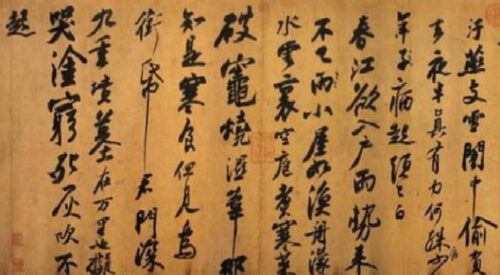 汙燕支雪闇中偷負
去夜半真有力何殊病少
年子病起頭已白
春江欲入戶雨勢來
不已雨小屋如漁舟濛々
水雲裏空庖煮寒菜
破竈燒濕葦那
知是寒食但見烏
銜帋君門深
九重墳墓在万里也擬
哭塗窮死灰吹不
起